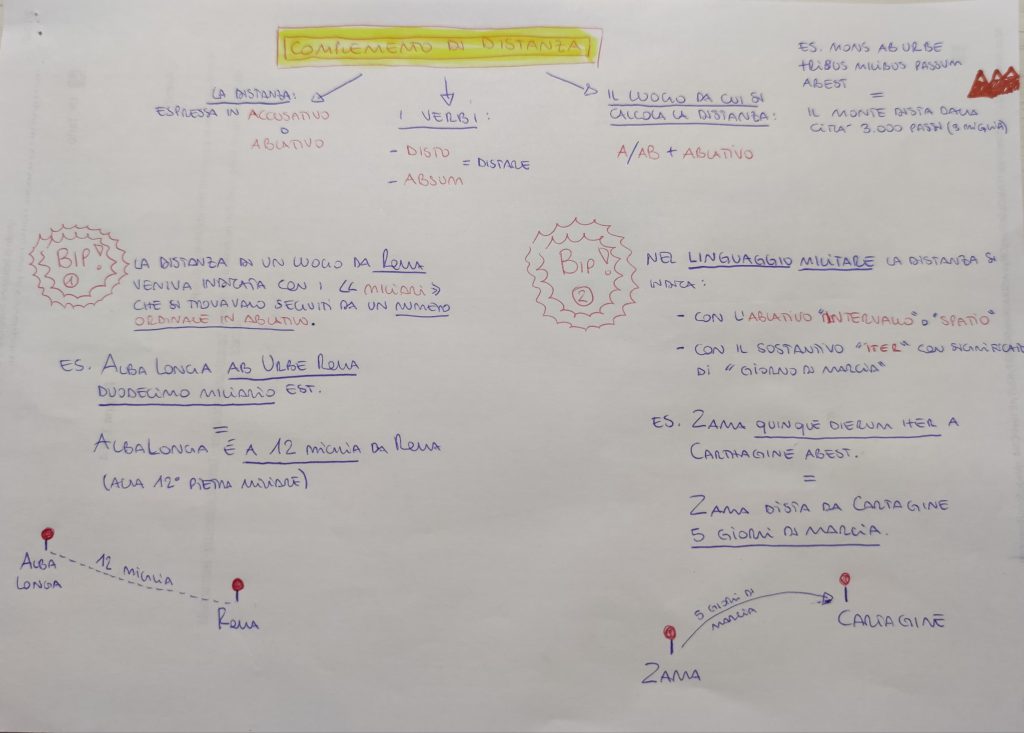 COMPLEMENTO DI DISTANZA
LA DISTANZA:
ESPRESSA IN ACCUSATIVO
O
ABLATIVO
I VERBI:
- DISTO
- ABSUM
= DISTARE
IL LUOGO DA CUI SI
CALCOLA LA DISTANZA:
A/AB + ABLATIVO
ES. MONS AB URBE
TRIBUS MILIBUS PASSUM
ABEST
=
IL MONTE DISTA DALLA
CITTA' 3.000 PASSI (3 MIGLIA)
BIP!
1
LA DISTANZA DI UN LUOGO DA ROMA
VENIVA INDICATA CON I << MILIARI >>
CHE SI TROVAVANO SEGUITI DA UN NUMERO
ORDINALE IN ABLATIVO.
ES. ALBA LONGA AB URBE ROMA
DUODECIMO MILIARIO EST.
=
ALBALONGA É A 12 MIGLIA DA ROMA
(ALLA 12° PIETRA MILIARE)
ALBA
LONGA
12 MIGLIA
ROMA
BIP!
2
NEL LINGUAGGIO MILITARE LA DISTANZA SI
INDICA:
- CON L'ABLATIVO "INTERVALLO" O "SPATIO"
- CON IL SOSTANTIVO "ITER" CON SIGNIFICATO
DI "GIORNO DI MARCIA"
ES. ZAMA QUINQUE DIERUM ITER A
CARTHAGINE ABEST.
=
ZAMA DISTA DA CARTAGINE
5 GIORNI DI MARCIA.
5 GIORNI DI
MARCIA
CARTAGINE
ZAMA